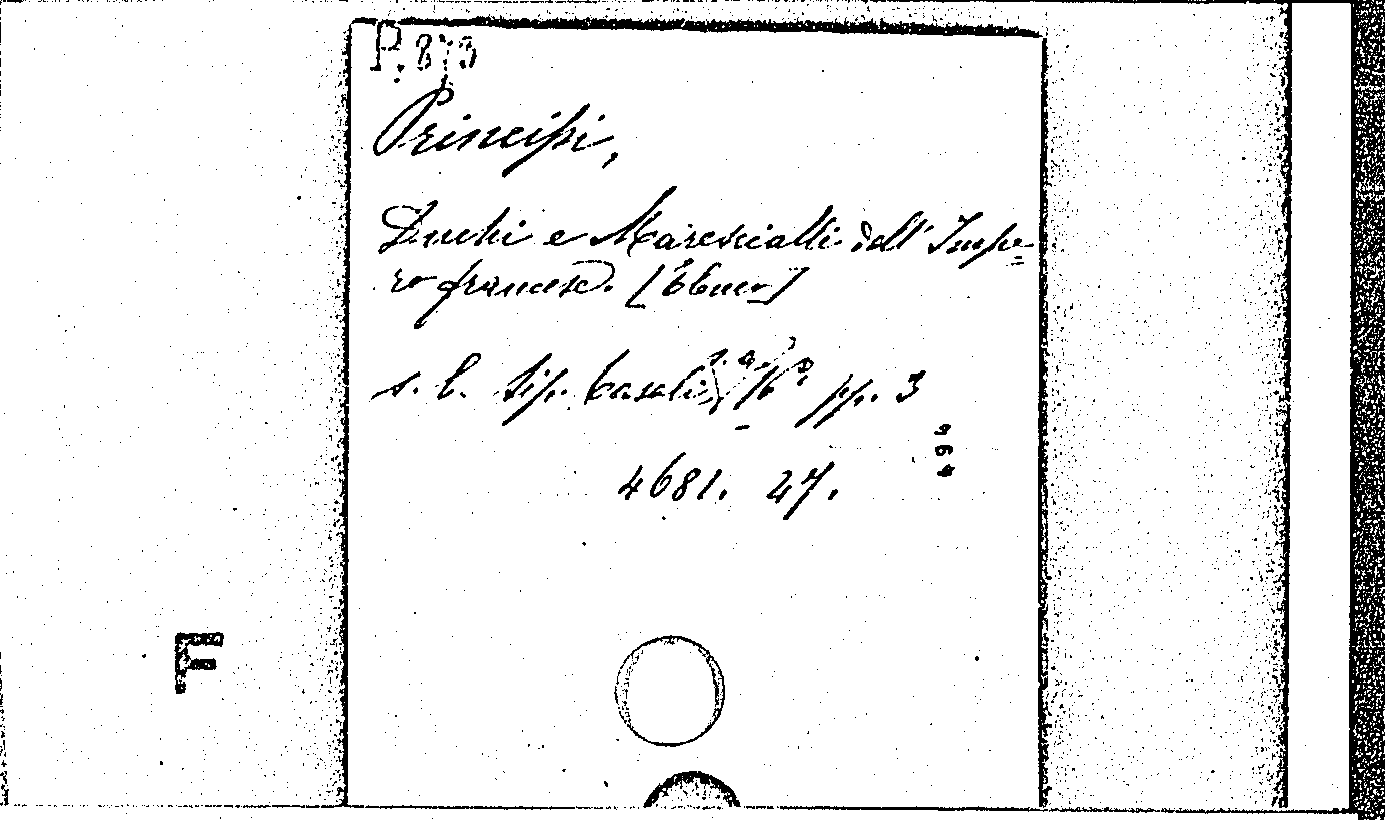 P. 873
Principi,
Duchi e Marescialli dell' Impe=
ro francese. [Elenco]
s. l. Tip. Casali, s. a. 16° pp. 3
4681. 27.
F